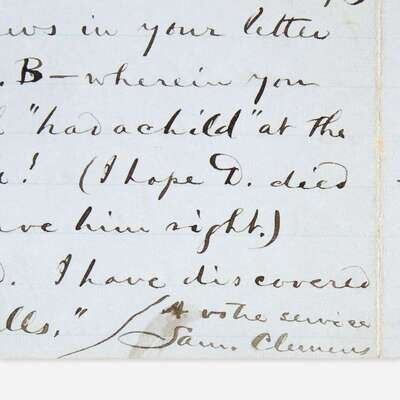 ews in your letter
. B — wherein you
"had a child" at the
! (I hope D. died
ve him right.)
d. I have discovered
lls."
A votre service
Sam. Clemens